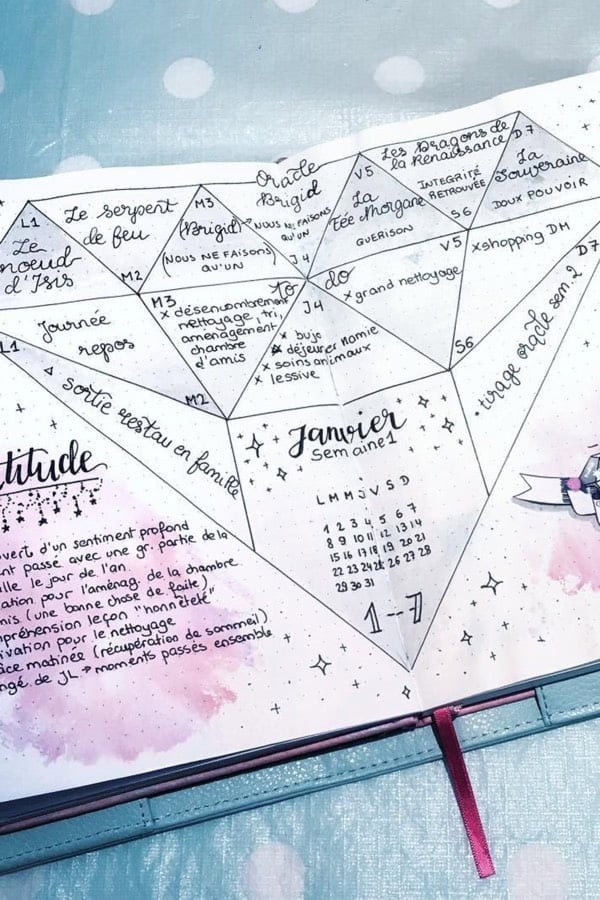 Oracle
Brigid
Les Dragons de
la Renaissance
L1
Le
noeud
d'Isis
Le serpent
de feu
M2
M3
(Brigid)
(NOUS NE FAISONS
QU'UN)
NOUS NE FAISONS
QU'UN
J4
V5
La
Fée Morgane
GUERISON
INTEGRITÉ
RETROUVÉE
S6
D7
La
Souveraine
DOUX POUVOIR
To do
L1
Journée
repos
M2
M3
x désencombrement
nettoyage, tri,
aménagement
chambre
d'amis
J4
x bujo
x déjeuner Mamie
x soins animaux
x lessive
V5
x grand nettoyage
S6
x shopping DM
D7
• tirage oracle sem. 2
sortie restau en famille
Janvier
Semaine 1
L M M J V S D
1 2 3 4 5 6 7
8 9 10 11 12 13 14
15 16 17 18 19 20 21
22 23 24 25 26 27 28
29 30 31
1--7
titude
d'un sentiment profond
passé avec une gr. partie de la
le jour de l'an
pour l'aménag. de la chambre
(une bonne chose de faite)
leçon "honnêteté"
pour le nettoyage
matinée (récupération de sommeil)
de JL → moments passés ensemble